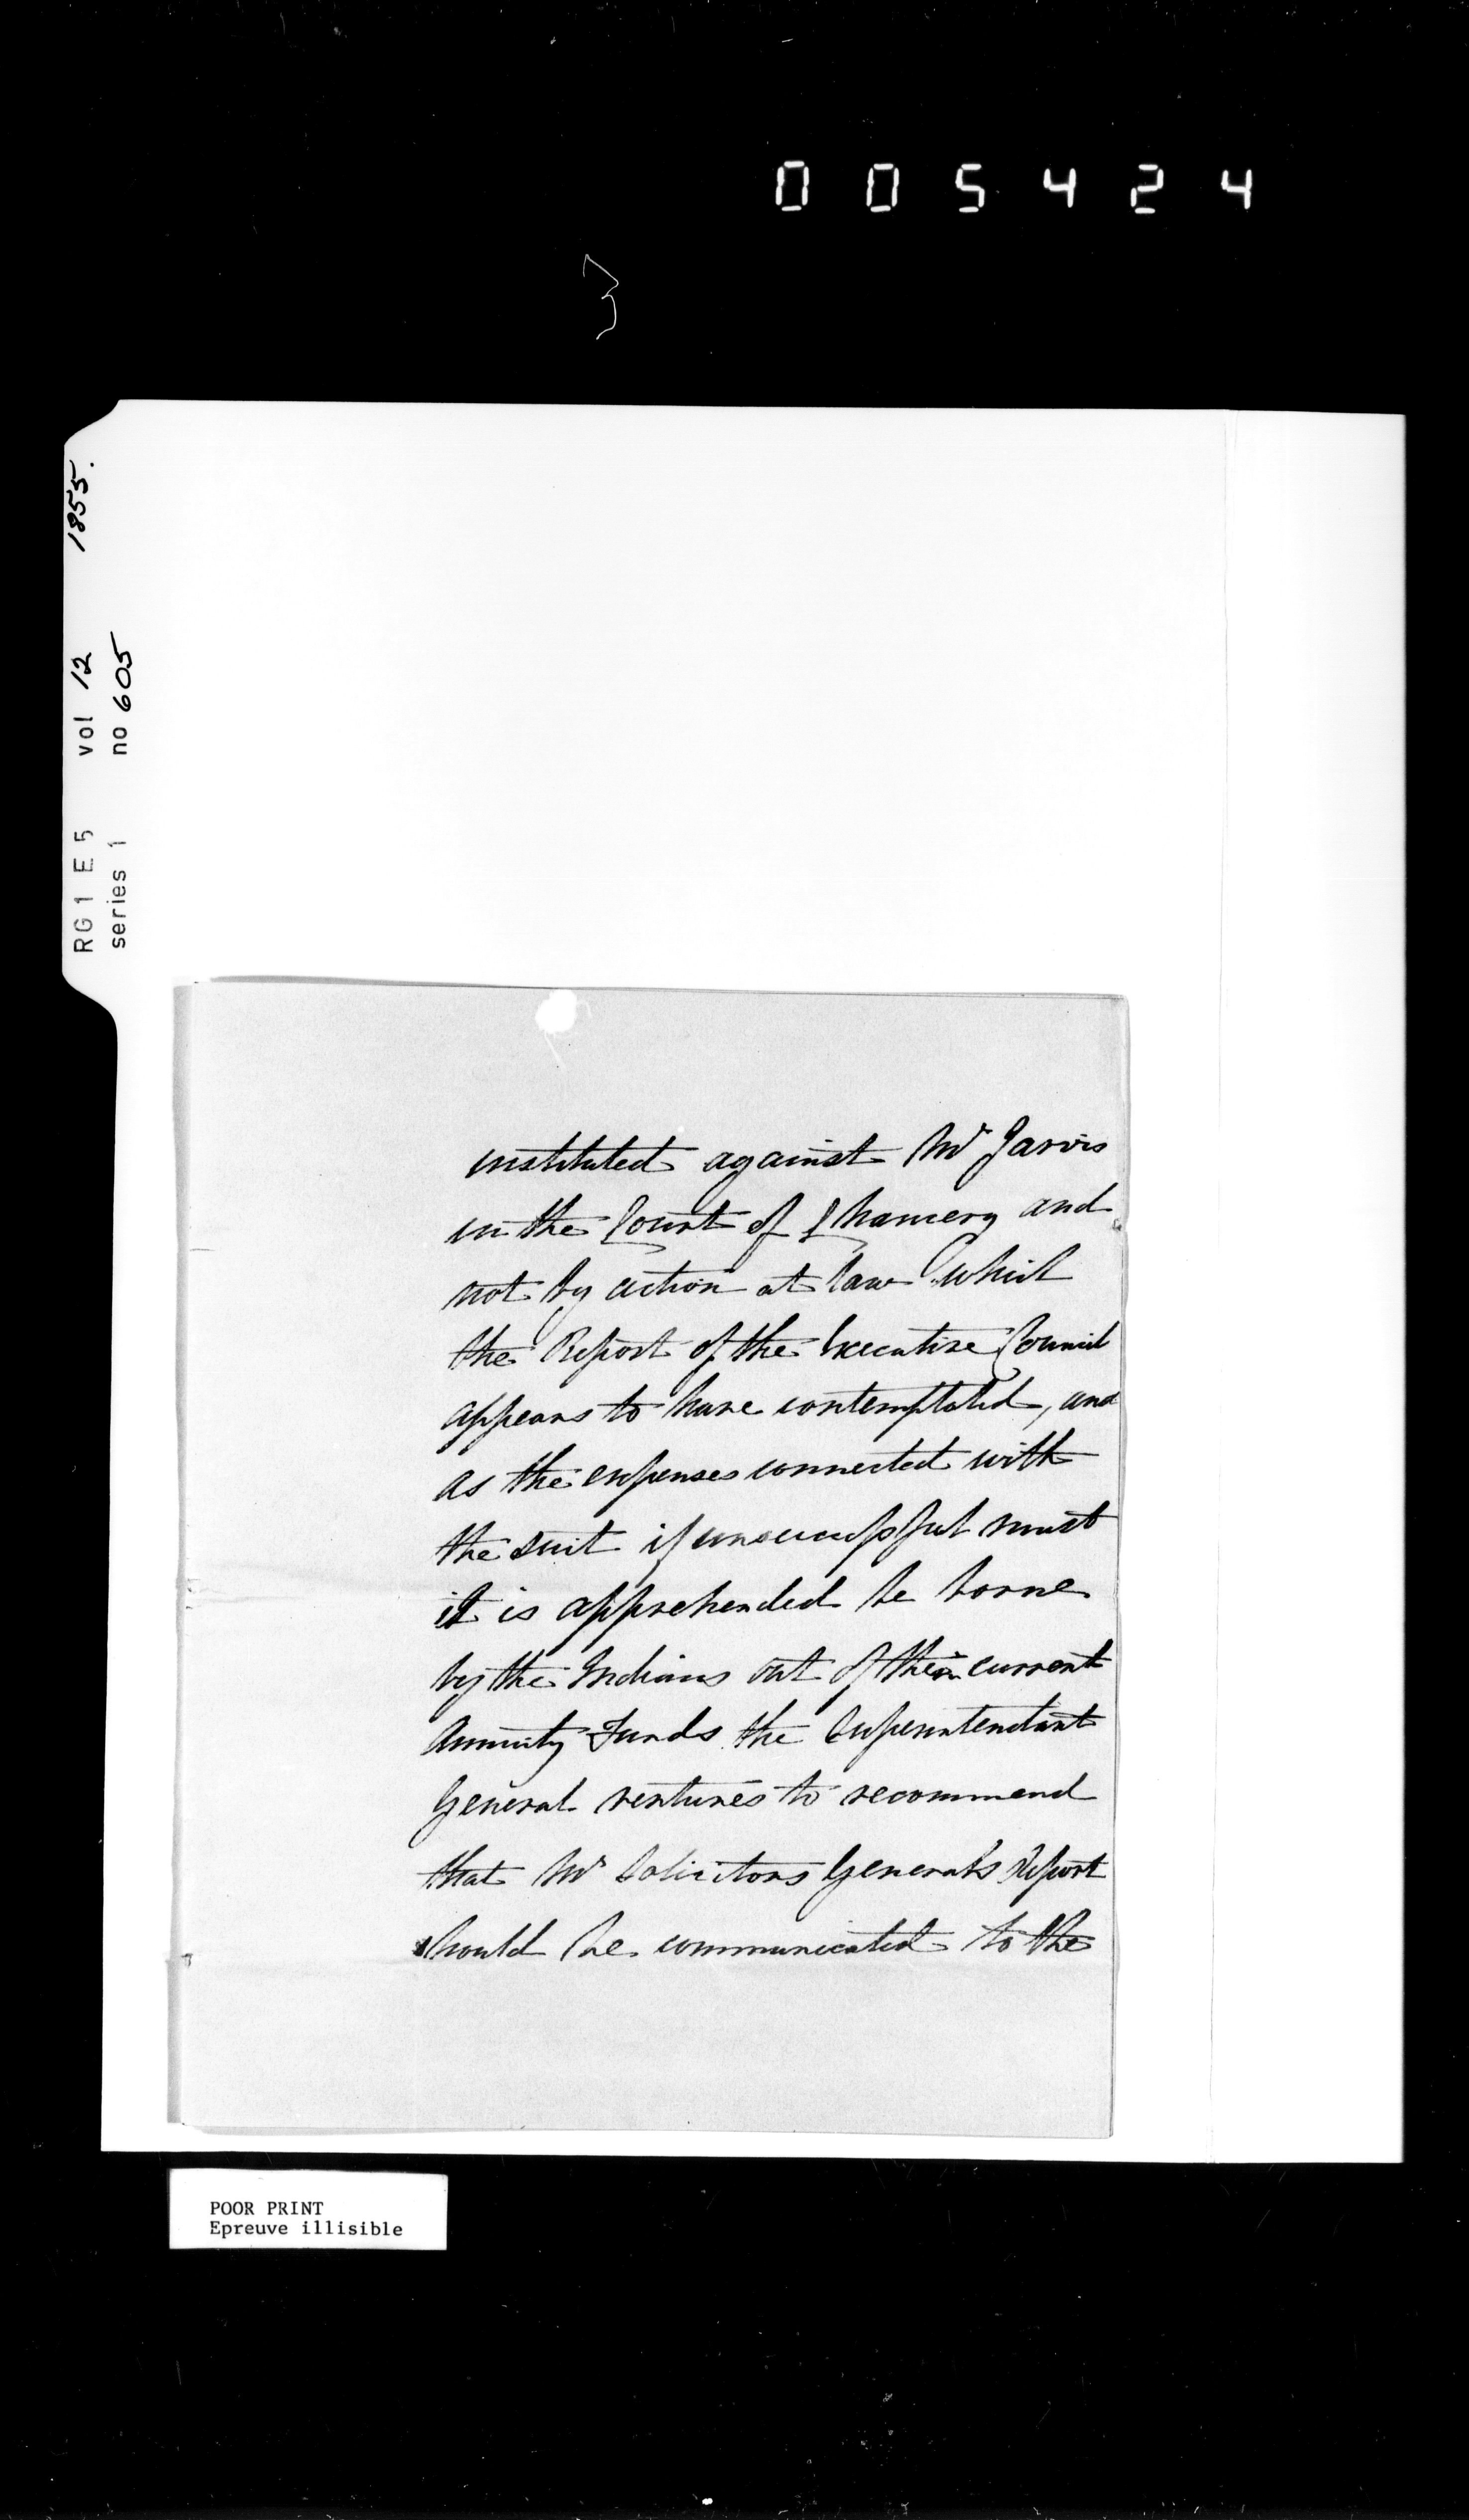 005424
3
1855.
RG1 E5 vol 12
series 1 no 605
instituted against Mr Jarvis
in the Court of Chancery and
not by action at law which
the Report of the Executive Council
appears to have contemplated, and
as the expenses connected with
the suit if unsuccessful must
it is apprehended be borne
by the Indians out of their current
Annuity Funds the Superintendant
General ventures to recommend
that Mr Solicitors General's Report
should be communicated to the
POOR PRINT
Epreuve illisible